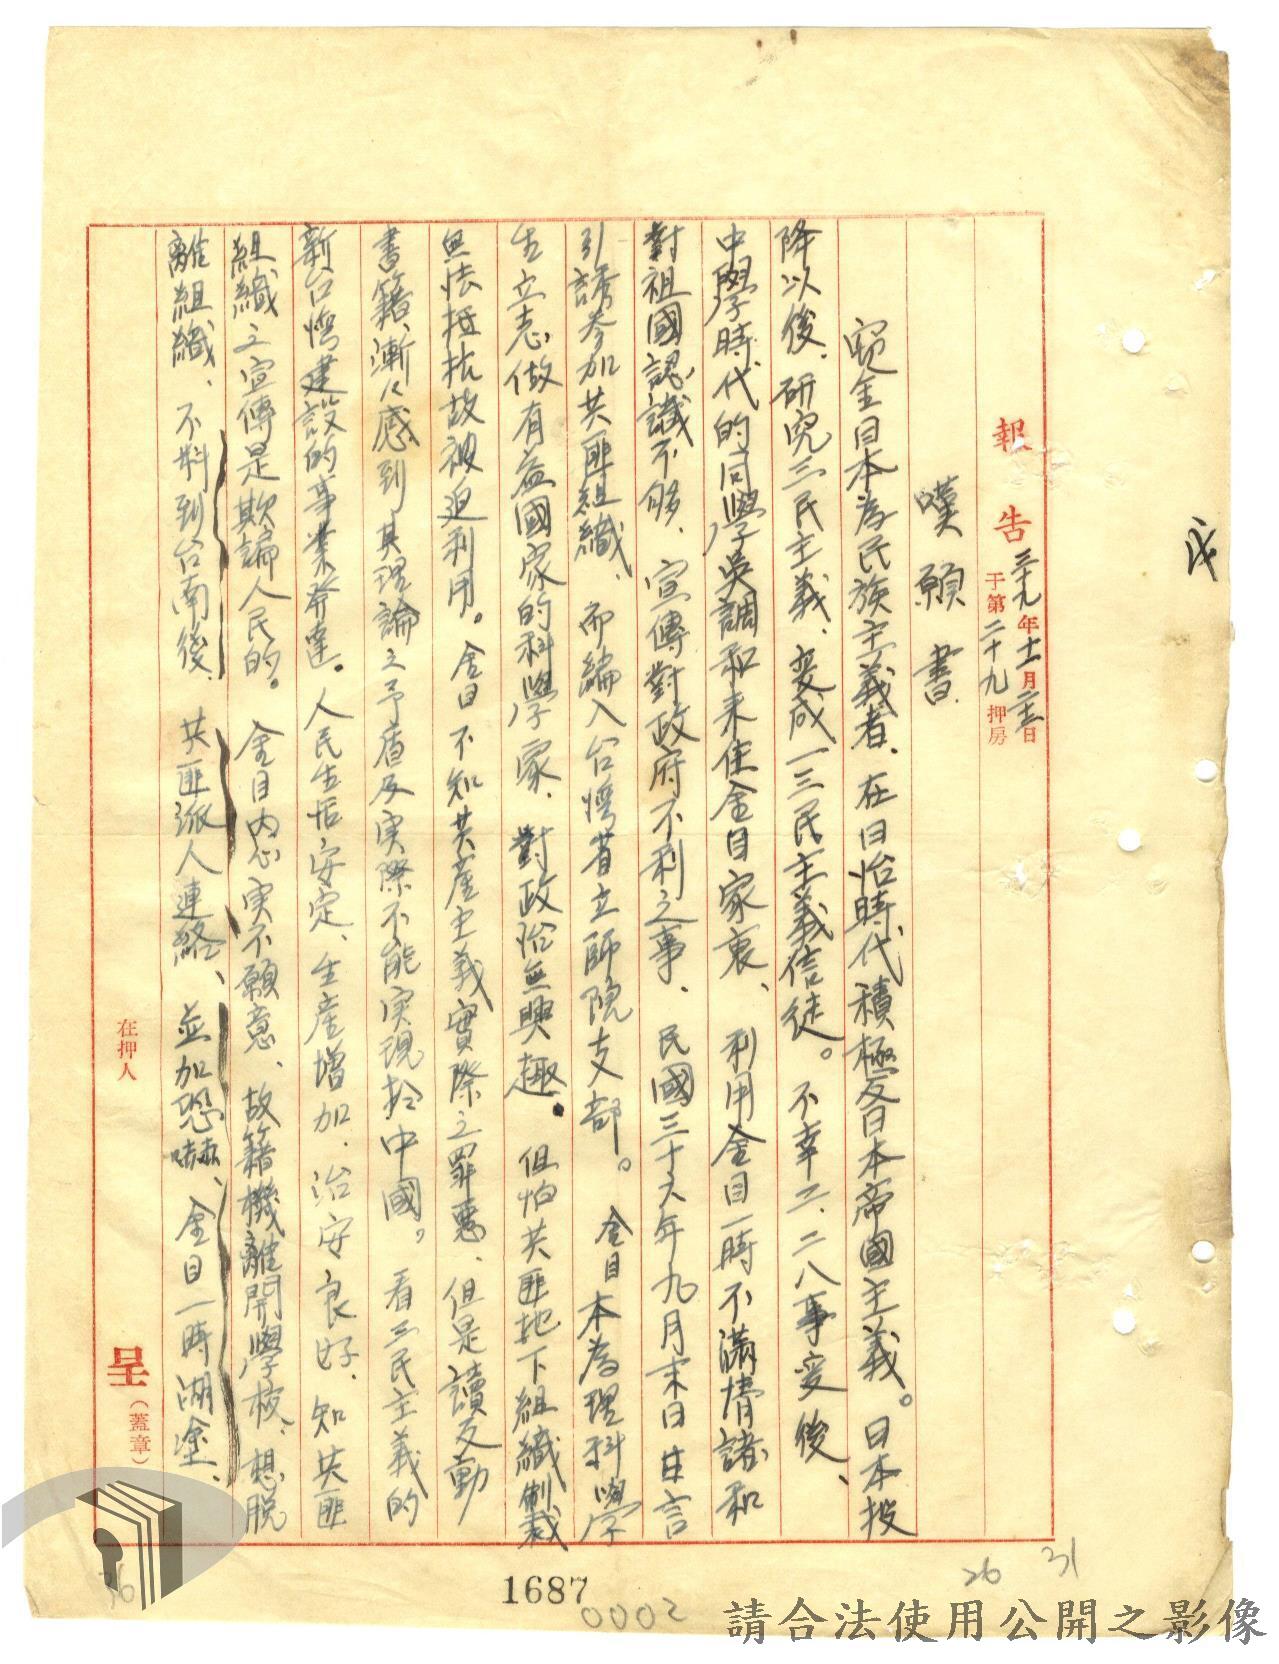 戌
報告
三十九年十二月二十三日
于第二十九押房
嘆願書
竊金目本為民族主義者、在日治時代積極反日本帝國主義。日本投
降以後、研究三民主義、変成一三民主義信徒。不幸二、二八事変後、
中學時代的同學吳調和来住金目家裏、利用金目一時不滿情諸和
對祖國認識不够、宣傳對政府不利之事、民國三十六年九月末日甘言
引誘参加共匪組織、而編入台湾省立師院支部。金目本為理科學
生立志做有益國家的科學家、對政治無興趣。但怕共匪地下組織制裁
無法抵抗故被迫利用。金目不知共産主義實際之罪惡、但是讀反動
書籍漸々感到其理論之予盾及実際不能実現於中國。看三民主義的
新台湾建設的事業発達。人民生活安定、生産增加、治安良好、知共匪
組織之宣傳是欺諞人民的。金目内心実不願意、故籍機離開學校、想脱
離組織、不料到台南後、共匪派人連絡、並加恐嚇、金目一時湖塗、
在押人
呈（蓋章）
1687
0002
26
31
36
請合法使用公開之影像